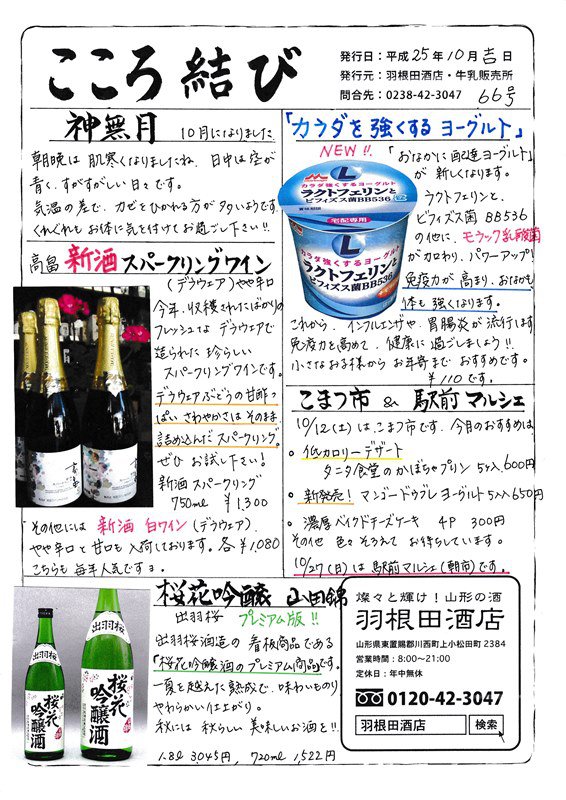 こころ結び
発行日：平成25年10月吉日
発行元：羽根田酒店・牛乳販売所
問合先：0238-42-3047
66号
神無月 10月になりました
朝晩は肌寒くなりましたね、日中は空が
青く、すがすがしい日々です。
気温の差で、カゼをひかれる方が多いようです
くれぐれもお体に気を付けてお過ごし下さい!!
高畠 新酒スパークリングワイン
(デラウェア)やや辛口
今年、収穫されたばかりの
フレッシュなデラウェアで
造られた珍らしい
スパークリングワインです。
デラウェアぶどうの甘酢っ
ぱいさわやかさはそのまま
詰め込んだスパークリング。
ぜひお試し下さい!
新酒スパークリング
750ml ¥1,300
その他には 新酒 白ワイン(デラウェア)
やや辛口と甘口も入荷しております。各¥1,080
こちらも毎年人気ですョ。
「カラダを強くするヨーグルト」
NEW!!
「おなかに配達ヨーグルト」
が新しくなります。
ラクトフェリンと、
ビフィズス菌BB536
の他に、モラック乳酸菌
が加わり、パワーアップ!
免疫力が高まり、おなかも
体も強くなります。
カラダ強くするヨーグルト
ラクトフェリンと
ビフィズス菌BB536
宅配専用
L
カラダ強くするヨーグルト
ラクトフェリンと
ビフィズス菌BB536
これから、インフルエンザや、胃腸炎が流行します
免疫力を高めて、健康に過ごしましょう!!
小さなお子様からお年寄までおすすめです。
¥110です。
こまつ市 & 駅前マルシェ
10/12(土)は、こまつ市です、今月のおすすめは
・低カロリーデザート
タニタ食堂のかぼちゃプリン 5ヶ入600円
・新発売!マンゴードゥグレヨーグルト5入650円
・濃厚ベイクドチーズケーキ 4P 300円
その他 色々そろえてお待ちしています。
10/27(日)は駅前マルシェ(朝市)です。
桜花吟醸 山田錦
出羽桜 プレミアム版!!
出羽桜酒造の看板商品である
「桜花吟醸酒のプレミアム商品」です。
一夏を越えた熟成で、味わいものり
やわらかい仕上がり。
秋には秋らしい美味しいお酒を!!
1.8l 3045円, 720ml 1,522円
出羽桜
桜花
吟醸酒
出羽桜
桜花
吟醸酒
燦々と輝け！山形の酒
羽根田酒店
山形県東置賜郡川西町上小松田町2384
営業時間：8:00～21:00
定休日：年中無休
0120-42-3047
羽根田酒店 検索